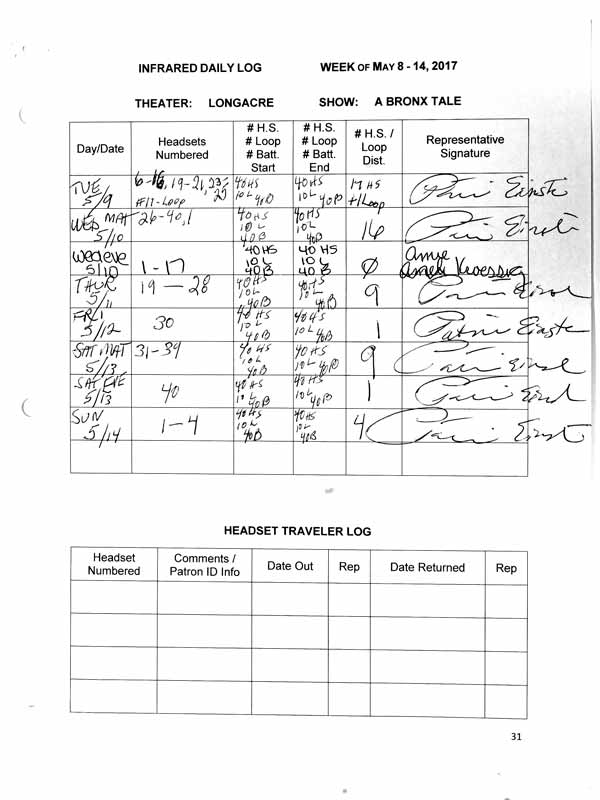 INFRARED DAILY LOG WEEK OF MAY 8 - 14, 2017
THEATER: LONGACRE SHOW: A BRONX TALE
Day/Date Headsets Numbered # H.S. # Loop # Batt. Start # H.S. # Loop # Batt. End # H.S. / Loop Dist. Representative Signature
TUE 5/9 #17-Loop 40HS 10L 40B 40HS 10L 40B 17HS +1Loop
WED MAT 5/10 26-40,1 40HS 10L 40B 40HS 10L 40B 16
wedeve 5/10 1-17 40HS 10L 40B 40HS 10L 40B 0
THUR 5/11 19-28 40HS 10L 40B 40HS 10L 40B 9
FRI 5/12 30 40HS 10L 40B 40HS 10L 40B 1
SAT MAT 5/13 31-39 40HS 10L 40B 40HS 10L 40B 9
SAT EVE 5/13 40 40HS 10L 40B 40HS 10L 40B 1
SUN 5/14 1-4 40HS 10L 40B 40HS 10L 40B 4
HEADSET TRAVELER LOG
Headset Numbered Comments / Patron ID Info Date Out Rep Date Returned Rep
31